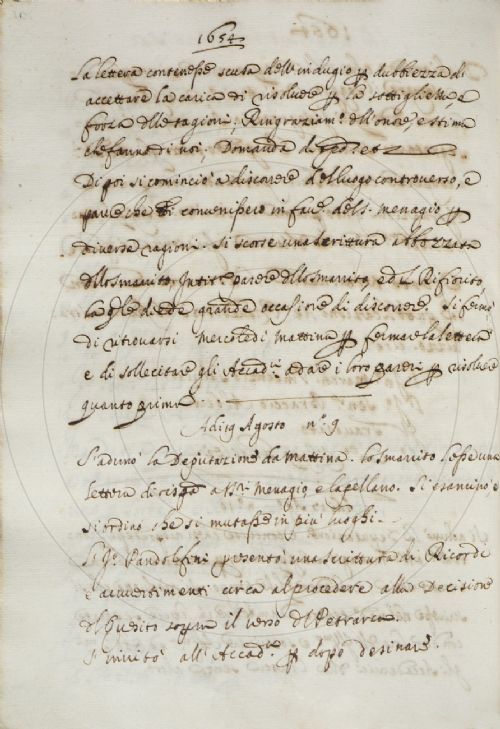 1654
La lettera contenesse scusa dell'indugio p dubbiezza di
accettare la carica di risoluere p la sottigliezza e
forza dlle ragioni; Ringraziam.º dll'onore, e stima
che fanno di noi; Domanda di
Di poi si cominciò a discorrere del luogo controuerso, e
parue che si conuenissero in fau.e del S. Menagio p
diuerse ragioni. Si scorse una scrittura abbozzata
dllo Smarrito, Intit.ta parere dllo Smarrito, ed l Rifiorito
la qle diede grande occasione di discorrere. Si fermò
di ritrouarsi Mercoledì mattina p fermare la lettera
e di sollecitare gli Accad.ci a dare i loro pareri p risoluere
quanto prima.
Adì 19 Agosto nº. 9
S'adunò la Deputazione da mattina. Lo Smarrito lesse una
lettera di risp.ta a SSri Menagio e Capellano. Si esaminò e
si ordinò che si mutasse in più luoghi.
Sr Pandolfini presentò una scrittura di Ricordi
e auuertimenti circa al procedere alla Decisione
dl Quesito sopra il uerso dl Petrarca
S'inuitò all'Accad.a p dopo desinare.